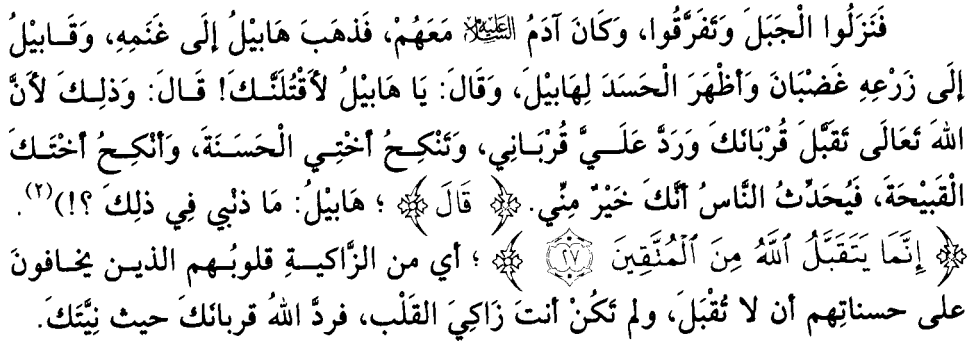 فَنَزَلُوا الْجَبَلَ وَتَفَرَّقُوا، وَكَانَ آدَمُ عَلَيْهِ السَّلَامُ مَعَهُمْ، فَذهَبَ هَابيْلُ إلَى غَنَمِهِ، وَقَابيْلُ
إلَى زَرْعِهِ غَضْبَانَ وَأظْهَرَ الْحَسَدَ لِهَابيْلَ، وَقَالَ: يَا هَابيْلُ لأَقْتُلَنَّكَ! قَالَ: وَذلِكَ لأَنَّ
اللهَ تَعَالَى تَقَبَّلَ قُرْبَانَكَ وَرَدَّ عَلَيَّ قُرْبَانِي، وَتَنْكِحُ أخْتِي الْحَسَنَةَ، وَأنْكِحُ أخْتَكَ
الْقَبيْحَةَ، فَيُحَدِّثُ النَّاسُ أنَّكَ خَيْرٌ مِنِّي. ﴿ قَالَ ﴾ ؛ هَابيْلُ: مَا ذنْبي فِي ذلِكَ ؟!)(٢).
﴿ إِنَّمَا يَتَقَبَّلُ ٱللَّهُ مِنَ ٱلْمُتَّقِينَ ٢٧ ﴾ ؛ أي من الزَّاكيةِ قلوبُهم الذين يخافونَ
على حسناتِهم أن لا تُقْبَلَ، ولم تَكُنْ أنتَ زَاكِيَ القَلْب، فردَّ اللهُ قربانَكَ حيث نِيَّتَكَ.